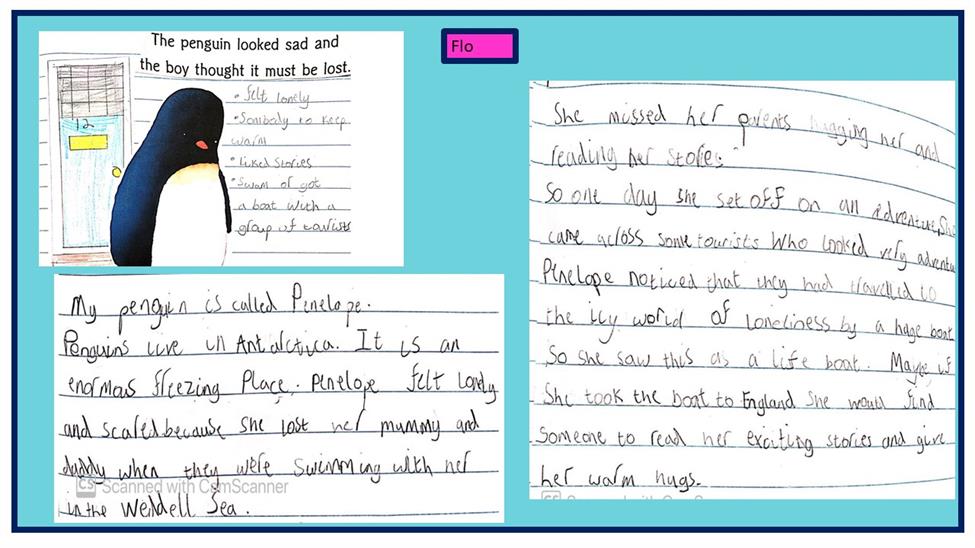 The penguin looked sad and
the boy thought it must be lost.
12
• felt lonely
• Sombody to keep
warm
• liked stories
• Swam or got
a boat with a
group of tourists
Flo
My penguin is called Penelope.
Penguins live in Antarctica. It is an
enormous freezing Place. Penelope felt lonely
and scared because she lost her mummy and
daddy when they were swimming with her
in the Weddell Sea.
CS Scanned with CamScanner
She missed her parents hugging her and
reading her stories.
So one day she set off on an adventure. She
came across some tourists Who looked very adventu
Penelope noticed that they had travelled to
the icy world of loneliness by a huge boat
So she saw this as a life boat. Maybe if
She took the boat to England she would find
Someone to read her exciting stories and give
her warm hugs.